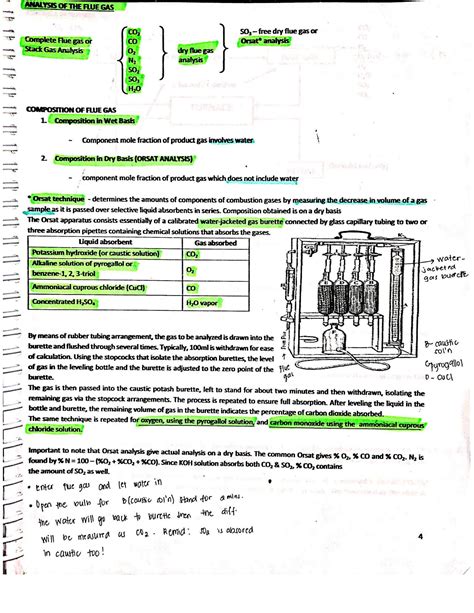 ANALYSIS OF THE FLUE GAS
Complete Flue gas or
Stack Gas Analysis
CO₂
CO
O₂
N₂
SO₂
SO₃
H₂O
dry flue gas
analysis
SO₃ – free dry flue gas or
Orsat* analysis
COMPOSITION OF FLUE GAS
1. Composition in Wet Basis
- Component mole fraction of product gas involves water
2. Composition in Dry Basis (ORSAT ANALYSIS)
- component mole fraction of product gas which does not include water
* Orsat technique - determines the amounts of components of combustion gases by measuring the decrease in volume of a gas
sample as it is passed over selective liquid absorbents in series. Composition obtained is on a dry basis
The Orsat apparatus consists essentially of a calibrated water-jacketed gas burette connected by glass capillary tubing to two or
three absorption pipettes containing chemical solutions that absorb the gases.
Liquid absorbent Gas absorbed
Potassium hydroxide (or caustic solution) CO₂
Alkaline solution of pyrogallol or
benzene-1, 2, 3-triol O₂
Ammoniacal cuprous chloride (CuCl) CO
Concentrated H₂SO₄ H₂O vapor
→ water-
jacketed
gas burette
B- caustic
sol'n
C- pyrogallol
D - CuCl
flue
gas
By means of rubber tubing arrangement, the gas to be analyzed is drawn into the
burette and flushed through several times. Typically, 100ml is withdrawn for ease
of calculation. Using the stopcocks that isolate the absorption burettes, the level
of gas in the leveling bottle and the burette is adjusted to the zero point of the
burette.
The gas is then passed into the caustic potash burette, left to stand for about two minutes and then withdrawn, isolating the
remaining gas via the stopcock arrangements. The process is repeated to ensure full absorption. After leveling the liquid in the
bottle and burette, the remaining volume of gas in the burette indicates the percentage of carbon dioxide absorbed.
The same technique is repeated for oxygen, using the pyrogallol solution, and carbon monoxide using the ammoniacal cuprous
chloride solution.
Important to note that Orsat analysis give actual analysis on a dry basis. The common Orsat gives % O₂, % CO and % CO₂. N₂ is
found by % N = 100 – (%O₂ + %CO₂ + %CO). Since KOH solution absorbs both CO₂ & SO₂, % CO₂ contains
the amount of SO₂ as well.
• Enter flue gas and let water in
• Open the bulb for B(caustic sol'n) stand for 2 mins.
the water will go back to burette then the diff.
will be measured as CO₂. Remind: SO₂ is absorbed
in caustic too!
4